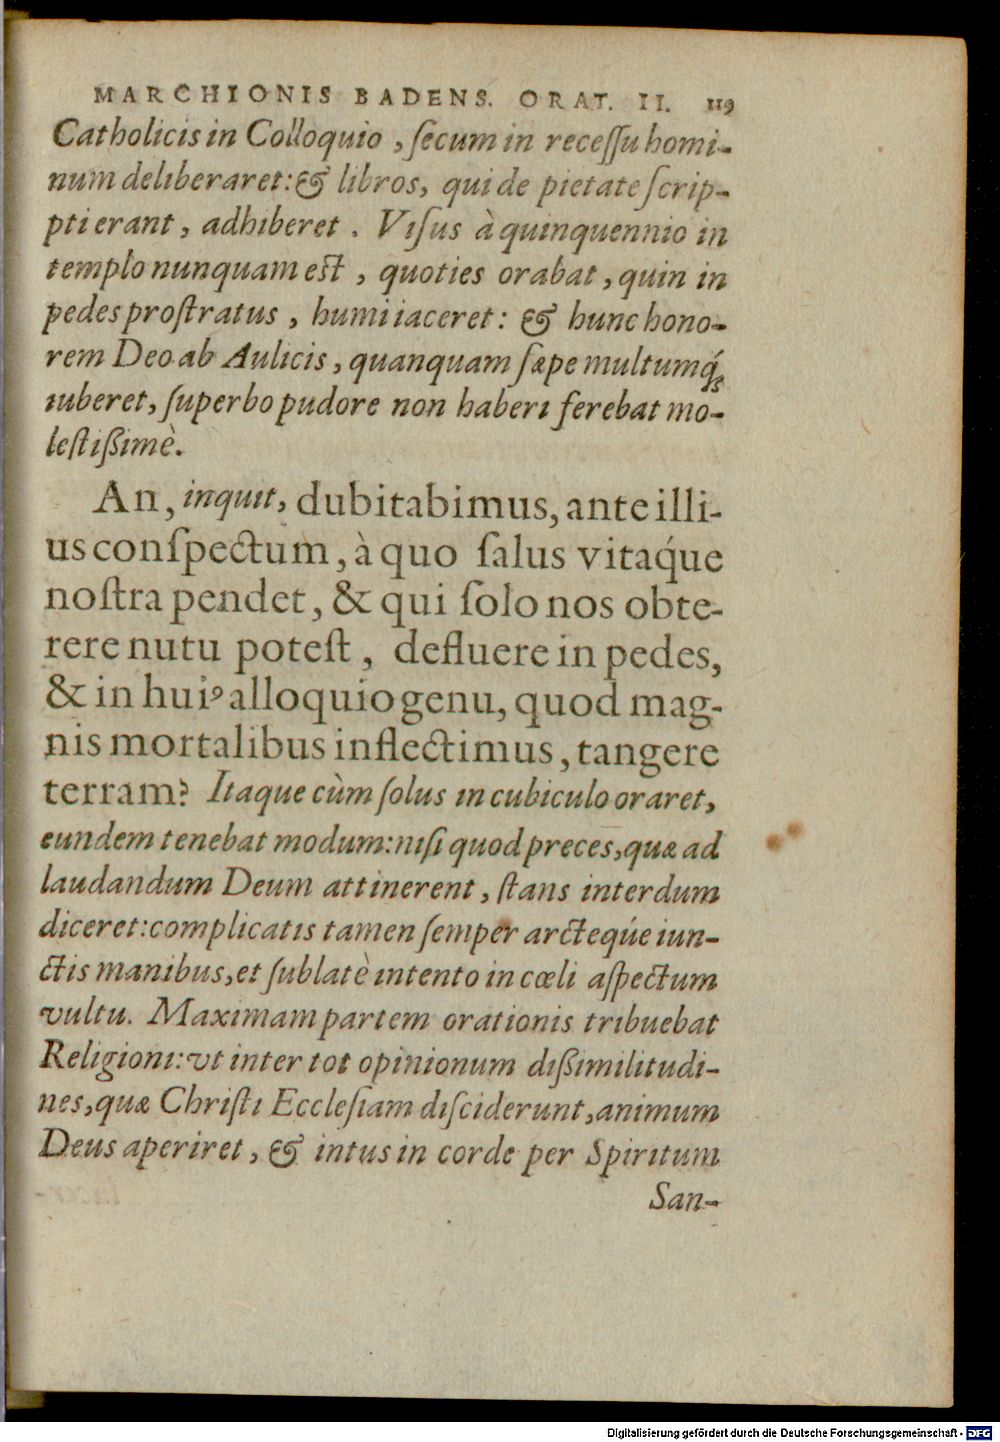 MARCHIONIS BADENS. ORAT. II. 119
Catholicis in Colloquio, ſecum in receſſu homi-
num deliberaret: & libros, qui de pietate ſcrip-
pti erant, adhiberet. Viſus à quinquennio in
templo nunquam eſt, quoties orabat, quin in
pedes proſtratus, humi iaceret: & hunc hono-
rem Deo ab Aulicis, quanquam ſæpe multumq́;
iuberet, ſuperbo pudore non haberi ferebat mo-
leſtißimè.
An, inquit, dubitabimus, ante illi-
us conſpectum, à quo ſalus vitaq́ue
noſtra pendet, & qui ſolo nos obte-
rere nutu poteſt, defluere in pedes,
& in huiꝰ alloquio genu, quod mag-
nis mortalibus inflectimus, tangere
terram? Itaque cùm ſolus in cubiculo oraret,
eundem tenebat modum: niſi quod preces, quæ ad
laudandum Deum attinerent, ſtans interdum
diceret: complicatis tamen ſemper arcteq́ue iun-
ctis manibus, et ſublatè intento in cœli aſpectum
vultu. Maximam partem orationis tribuebat
Religioni: vt inter tot opinionum dißimilitudi-
nes, quæ Chriſti Eccleſiam diſciderunt, animum
Deus aperiret, & intus in corde per Spiritum
San-
Digitalisierung gefördert durch die Deutsche Forschungsgemeinschaft - DFG